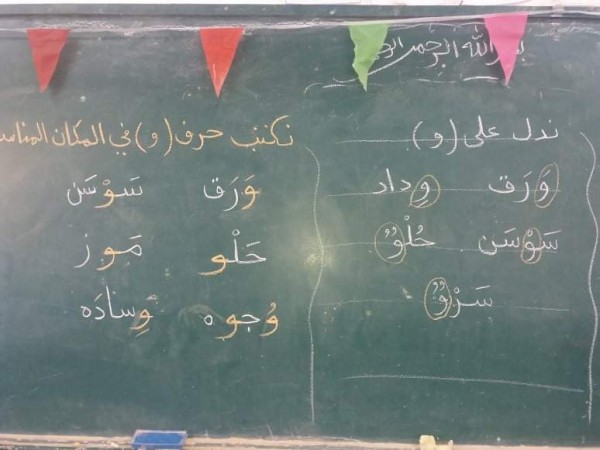 بسم الله الرحمن الرحيم
ندل على (و)
وَرَق وِداد
سَوْسَن حُلْوٌ
سَرْوٌ
نكتب حرف (و) في المكان المناسب
وَرَق سَوْسَن
حَلْو مَوز
وُجوه وِسادَه